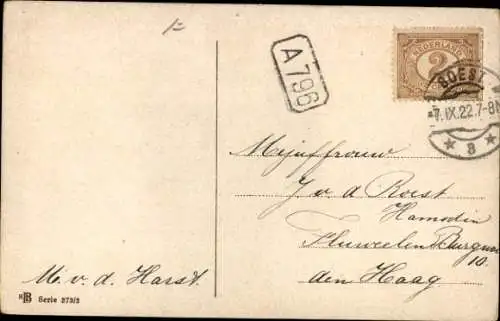 A 796
NEDERLAND
2
SOEST
7.IX.22.7-8N
* 3 *
Mejuffrouw
J. v. d. Roest
Fluweelen Burgw
10.
den Haag
M. v. d. Horst.
RB Serie 273/2